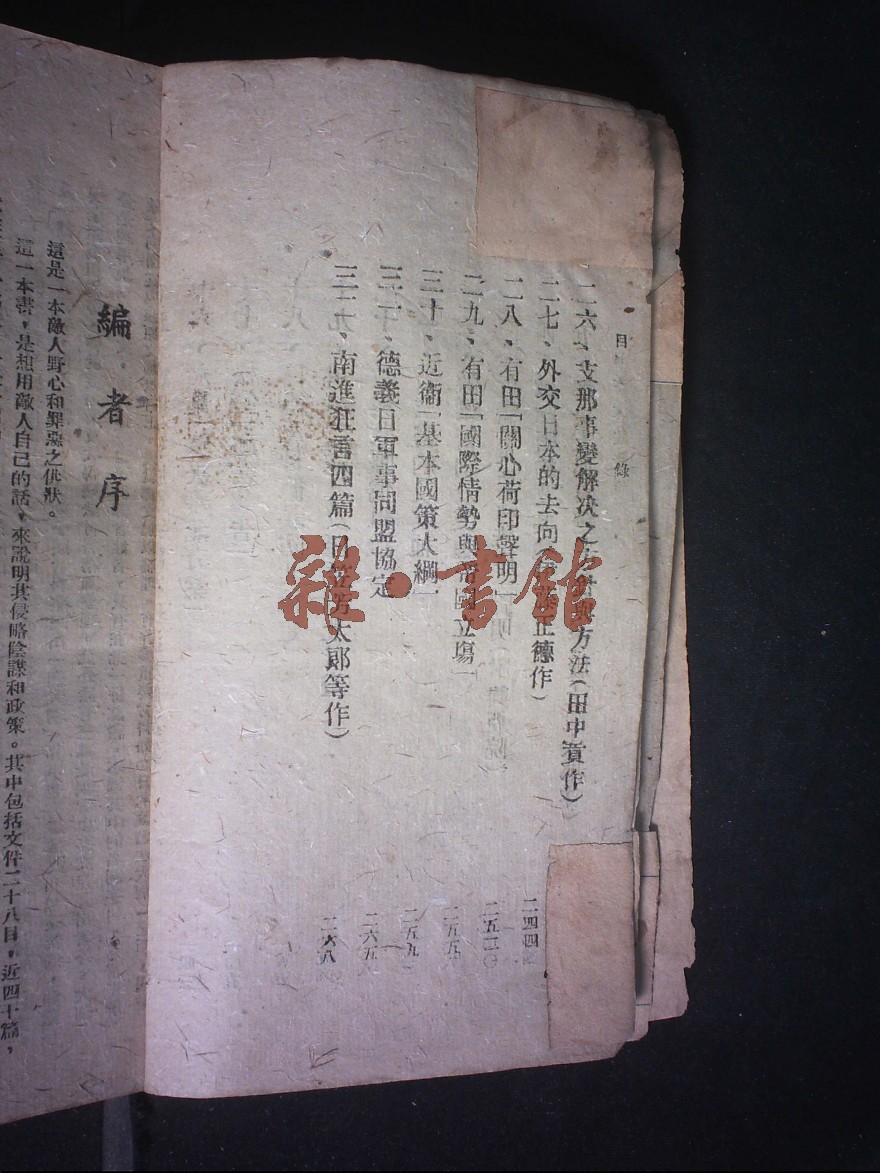 目 錄
二六、支那事變解决之方針與方法(田中直作)
二七、外交日本的去向(正德作)
二八、有田「關心荷印聲明」
二九、有田「國際情勢與帝國立塲」
三十、近衞「基本國策大綱」
三一、德義日軍事同盟協定
三二、南進狂言四篇(日笠芳太郎等作)
二四四
二五〇
二五五
二五九
二六五
二六八
雜·書館
編者序
這是一本敵人野心和罪惡之供狀。
這一本書,是想用敵人自己的話,來說明其侵略陰謀和政策。其中包括文件二十八目,近四十篇,